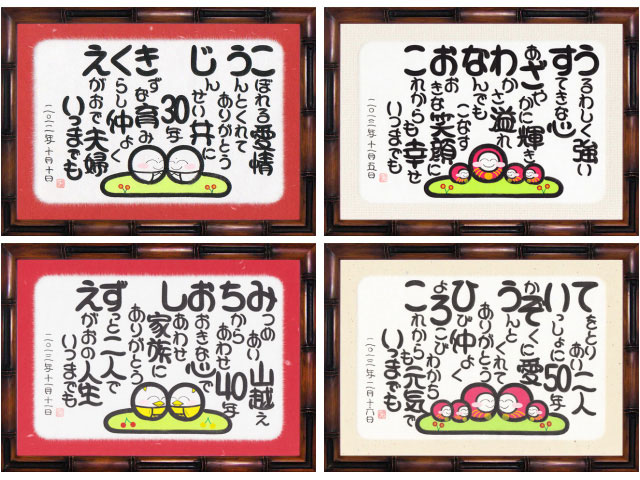 こぼれる愛情
うんとくれて
ありがとう
じんせい共に
30年
きずな育み
くらし仲よく
えがおで夫婦
いつまでも
二〇一二年十月十日
うるわしく強い
すてきな心
あざやかに輝き
わかさ溢れ
なんでも
こなす
おおきな笑顔に
これからも幸せ
いつまでも
二〇一二年十一月五日
みつめあい山越え
ちからあわせ40年
おおきな心で
しあわせ家族に
ありがとう
ずっと二人で
えがおの人生
いつまでも
二〇一三年十一月十一日
てをとりあい二人
いっしょに50年
かぞくに愛
うんとくれて
ありがとう
ひび仲よく
よろこびわかち
これからも元気で
いつまでも
二〇一三年二月十六日